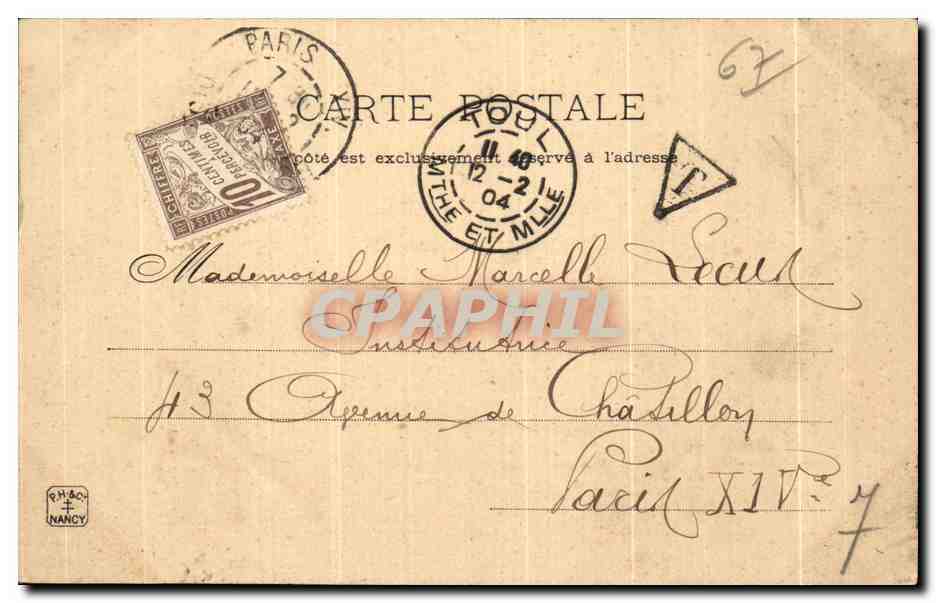 67
PARIS XIV
CARTE POSTALE
côté est exclusivement réservé à l'adresse
TOUL
11 40
12 -2
04
MTHE ET MLLE
T
CHIFFRE
TAXE
10
CENTIMES
A PERCEVOIR
POSTES
Mademoiselle Marcelle
Institutrice
43 Avenue de Châtillon
Paris XIVe
7
P.H.&Cie
NANCY
CPAPHIL